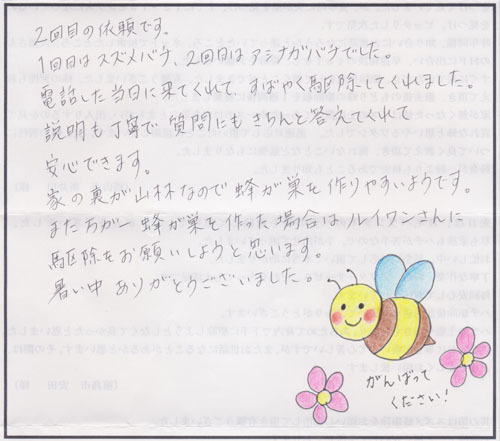 2回目の依頼です。
1回目はスズメバチ、2回目はアシナガバチでした。
電話した当日に来てくれて、すばやく駆除してくれました。
説明も丁寧で、質問にもきちんと答えてくれて
安心できます。
家の裏が山林なので蜂が巣を作りやすいようです。
また万が一蜂が巣を作った場合はルイワンさんに
駆除をお願いしようと思います。
暑い中ありがとうございました。
がんばって
ください!